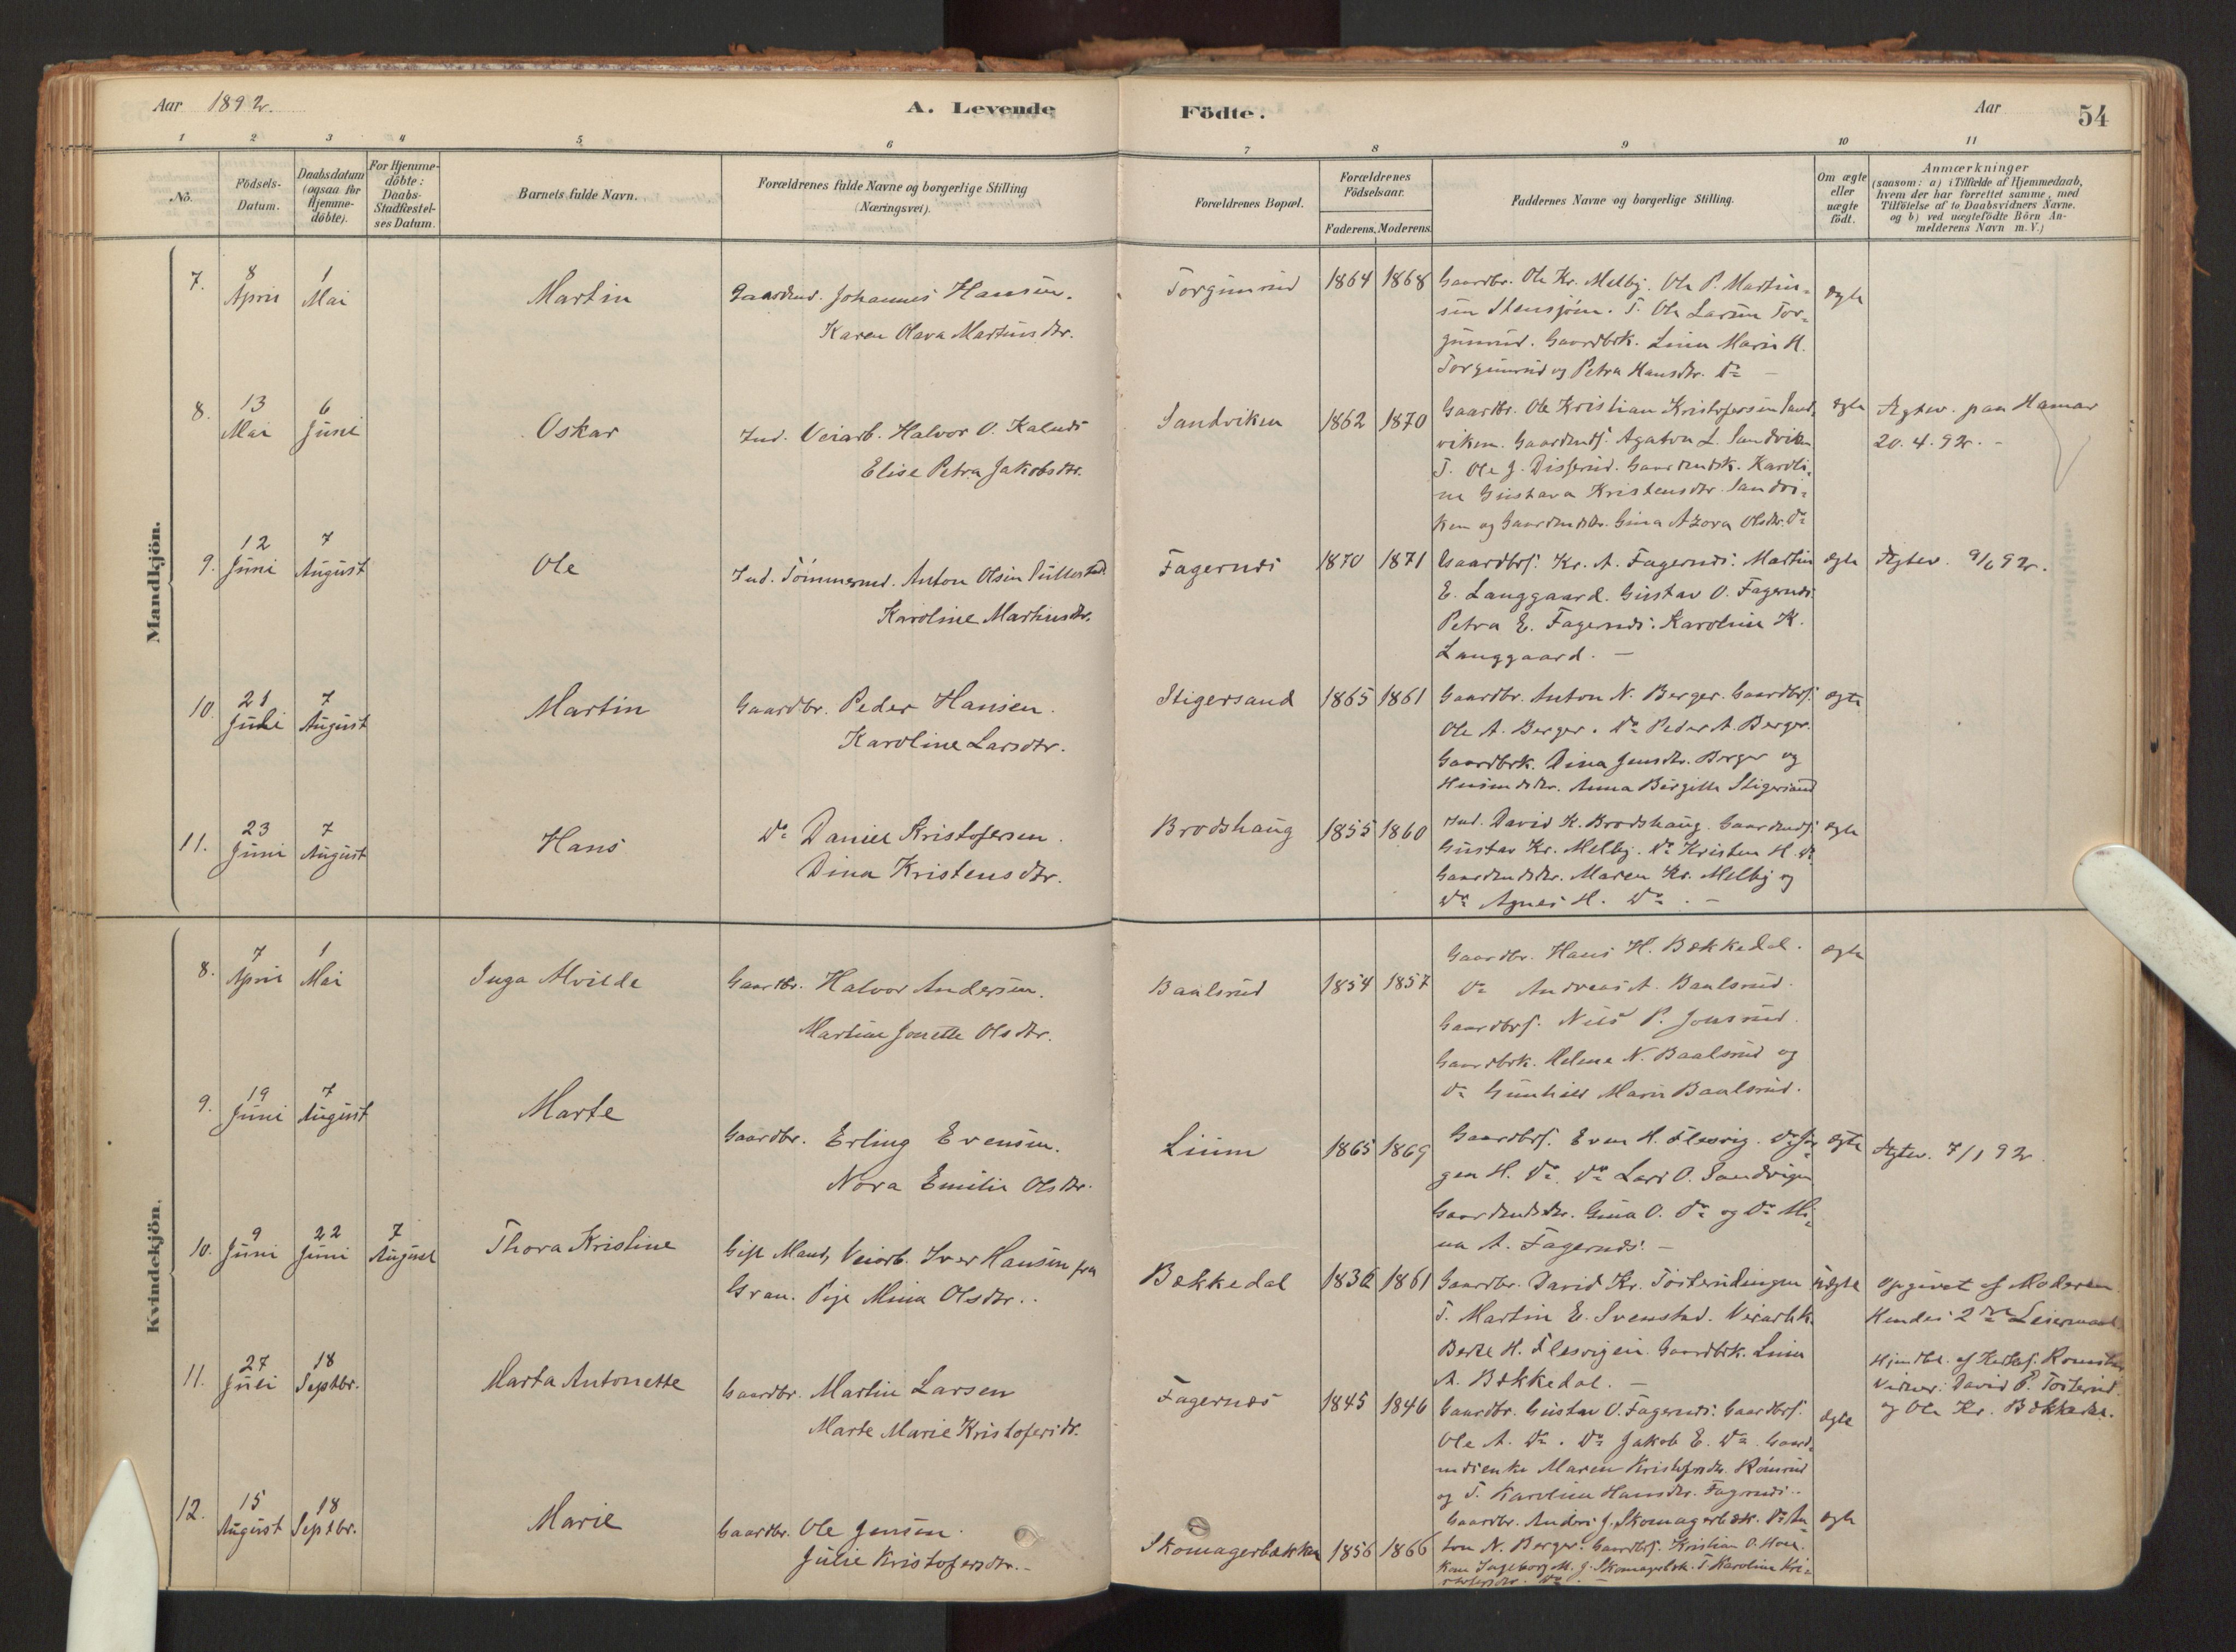 Aar 1892.
A. Levende Födte.
Aar
54
1 2 3 4 5 6 7 8 9 10 11
No.
Födsels-
Datum.
Daabsdatum
(ogsaa for
Hjemme-
döbte).
For Hjemme-
döbte:
Daabs-
Stadfæstel-
ses Datum.
Barnets fulde Navn.
Forældrenes fulde Navne og borgerlige Stilling
(Næringsvei).
Forældrenes Bopæl.
Forældrenes
Födselsaar.
Faderens. Moderens.
Faddernes Navne og borgerlige Stilling.
Om ægte
eller
uægte
födt.
Anmærkninger
(saasom: a) i Tilfælde af Hjemmedaab,
hvem der har forrettet samme, med
Tilföielse af to Daabsvidners Navne,
og b) ved uægtefödte Börn An-
melderens Navn m. V.)
Mandkjön.
7.
8
April
1
Mai
Martin
Gaardmd. Johannes Hansen.
Karen Olava Martinsdtr.
Torgunrud
1864 1868
Gaardbr. Ole Kr. Melby. Ole P. Martin-
sen Stensjöen. T. Ole Larsen Tor-
gunrud. Gaardbrk. Lina Marie H.
Torgunrud og Petra Hansdtr. Do –
ægte
8.
13
Mai
6
Juni
Oskar
Ind. Veiarb. Halvor O.
Elise Petra Jakobsdtr.
Sandviken
1862 1870
Gaardbr. Ole Kristian Kristofersen Sand-
viken. Gaardmds. Agaton L. Sandviken
T. Ole J. Disserud. Gaardmdsk. Karoli-
ne Gustava Kristensdtr. Sandvi-
ken og Gaardmdsdtr. Gina Azora Olsdtr. Do
ægte
Ægtev. paa Hamar
20.4.92. –
9.
12
Juni
7
August
Ole
Ind. Tömmermd. Anton Olsen
Karoline Martinsdtr.
Fagernæs
1870 1871
Gaardbrs. Kr. A. Fagernæs. Martin
E. Langgaard. Gustav O. Fagernæs.
Petra E. Fagernæs. Karoline K.
Langgaard. –
ægte
Ægtev. 9/6 92.
10.
21
Juli
7
August
Martin
Gaardbr. Peder Hansen.
Karoline Larsdtr.
Stigersand
1865 1861
Gaardbr. Anton N. Berger. Gaardbrs.
Ole A. Berger. Do Peder A. Berger.
Gaardbrk. Dina Jensdtr. Berger og
Husmdsdtr. Anna Birgitte Stigersand
ægte
11.
23
Juni
7
August
Hans
Do Daniel Kristofersen.
Dina Kristensdtr.
Brodshaug
1855 1860
Ind. David K. Brodshaug. Gaardmds.
Gustav Kr. Melby. Do Kristen H. Do
Gaardmdsdtr. Maren Kr. Melby og
Do Agnes H. Do. –
ægte
Kvindekjön.
8.
7
April
1
Mai
Inga Alvilde
Gaardbr. Halvor Andersen.
Martine Jonette Olsdtr.
Baalsrud
1854 1857
Gaardbr. Hans H. Bækkedal.
Do Andreas A. Baalsrud.
Gaardbrs. Nils P. Jonsrud.
Gaardbrk. Helene N. Baalsrud og
Do Gunhild Marie Baalsrud.
ægte
9.
19
Juni
7
August
Marte
Gaardbr. Erling Evensen.
Nora Emilie Olsdtr.
Lium
1865 1869
Gaardbrs. Even H. Flesvig. Do Jör-
gen H. Do. Do Lars O. Sandvigen
Gaardmdsdtr. Gina O. Do og Do Mi-
na A. Fagernæs. –
ægte
Ægtev. 7/1 92
10.
9
Juni
22
Juni
7
August
Thora Kristine
Gift Mand, Veiarb. Iver Hansen fra
Gran. Pige Mina Olsdtr.
Bækkedal
1836 1861
Gaardbr. David Kr. Tösterudengen
T. Martin E. Svenstad. Veiarbk.
Berte H. Flesvigen. Gaardbrk. Lina
A. Bækkedal. –
uægte
Opgivet af Moderen
Hendes 2det Leiermaal.
Hjmdbt. af
Vidner: David P. Tösterud.
og Ole Kr. Bækkedal.
11.
27
Juli
18
Septbr.
Marta Antonette
Gaardbr. Martin Larsen
Marte Marie Kristofersdtr.
Fagernæs
1845 1846
Gaardbr. Gustav O. Fagernæs. Gaardbrs.
Ole A. Do. Do Jakob E. Do. Gaard-
mdsenke Maren Kristofersdtr. Römsrud
og T. Karoline Hansdtr. Fagernæs. –
ægte
12.
15
August
18
Septbr.
Marie
Gaardbr. Ole Jensen.
Julie Kristofersdtr. –
Skomagerbakken
1856 1866
Gaardbr. Anders J. Skomagerbak. Do An-
ton N. Berger. Gaardbrs. Kristian O.
Kone Ingeborg M. J. Skomagerbak. T. Karoline Kri-
stofersdtr. Do. –
ægte